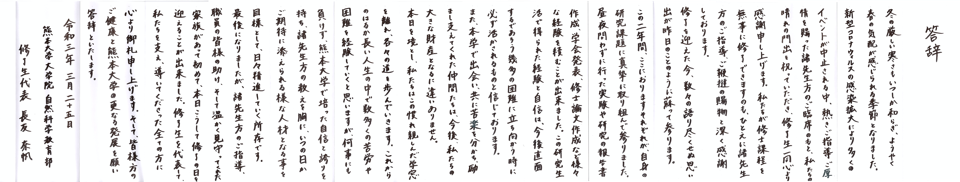 答辞
冬の厳しい寒さもいつしか和らぎ、ようやく
春の気配が感じられる季節となりました。
新型コロナウイルスの感染拡大により多くの
イベントが中止される中、熱いご指導、ご厚
情を賜った諸先生方のご臨席のもと、私たちの
晴れの門出を祝っていただき修了生一同心より
感謝申し上げます。私たちが修士課程を
無事に修了できますのも、ひとえに諸先生
方のご指導、ご鞭撻の賜物と深く感謝
しております。
修了を迎えた今、数々の語り尽くせぬ思い
出が昨日のことのように蘇って参ります。
この二年間、ここにおりますそれぞれが、自身の
研究課題に真摯に取り組んで参りました。
昼夜問わずに行った実験や研究の報告書
作成、学会発表、修士論文作成など様々
な経験を積むことが出来ました。この研究生
活で得られた経験と自信は、今後直面
するであろう幾多の困難に立ち向かう時に
必ず活かされるものと信じております。
熊本大学で出会い、共に苦楽を分かち
ました支えてくれた仲間たちは、今後私たちの
大きな財産となるに違いありません。
本日を境に、私たちはこの慣れ親しんだ学窓
を離れ、各々の道を歩んでいきます。この先
のはるか長い人生の中で数多くの苦労や
困難を経験していくと思いますが、何事にも
負けず、熊本大学で培った自信と誇りを
持ち、諸先生方の教えを胸に、いつの日か
ご期待に添えられる様な人材となる事を
目標として、日々精進していく所存です。
最後になりましたが、諸先生方のご指導、
職員の皆様の助け、そして温かく見守ってくれた
家族があって初めて、本日こうして修了の日を
迎えることが出来ました。修了生を代表して、
私たちを支え、導いてくださった全ての方に
心より御礼申し上げます。そして、皆様方の
ご健康と熊本大学の更なる発展を願い、
答辞といたします。
令和三年三月二十五日
熊本大学大学院自然科学教育部
修了生代表 長友奈帆